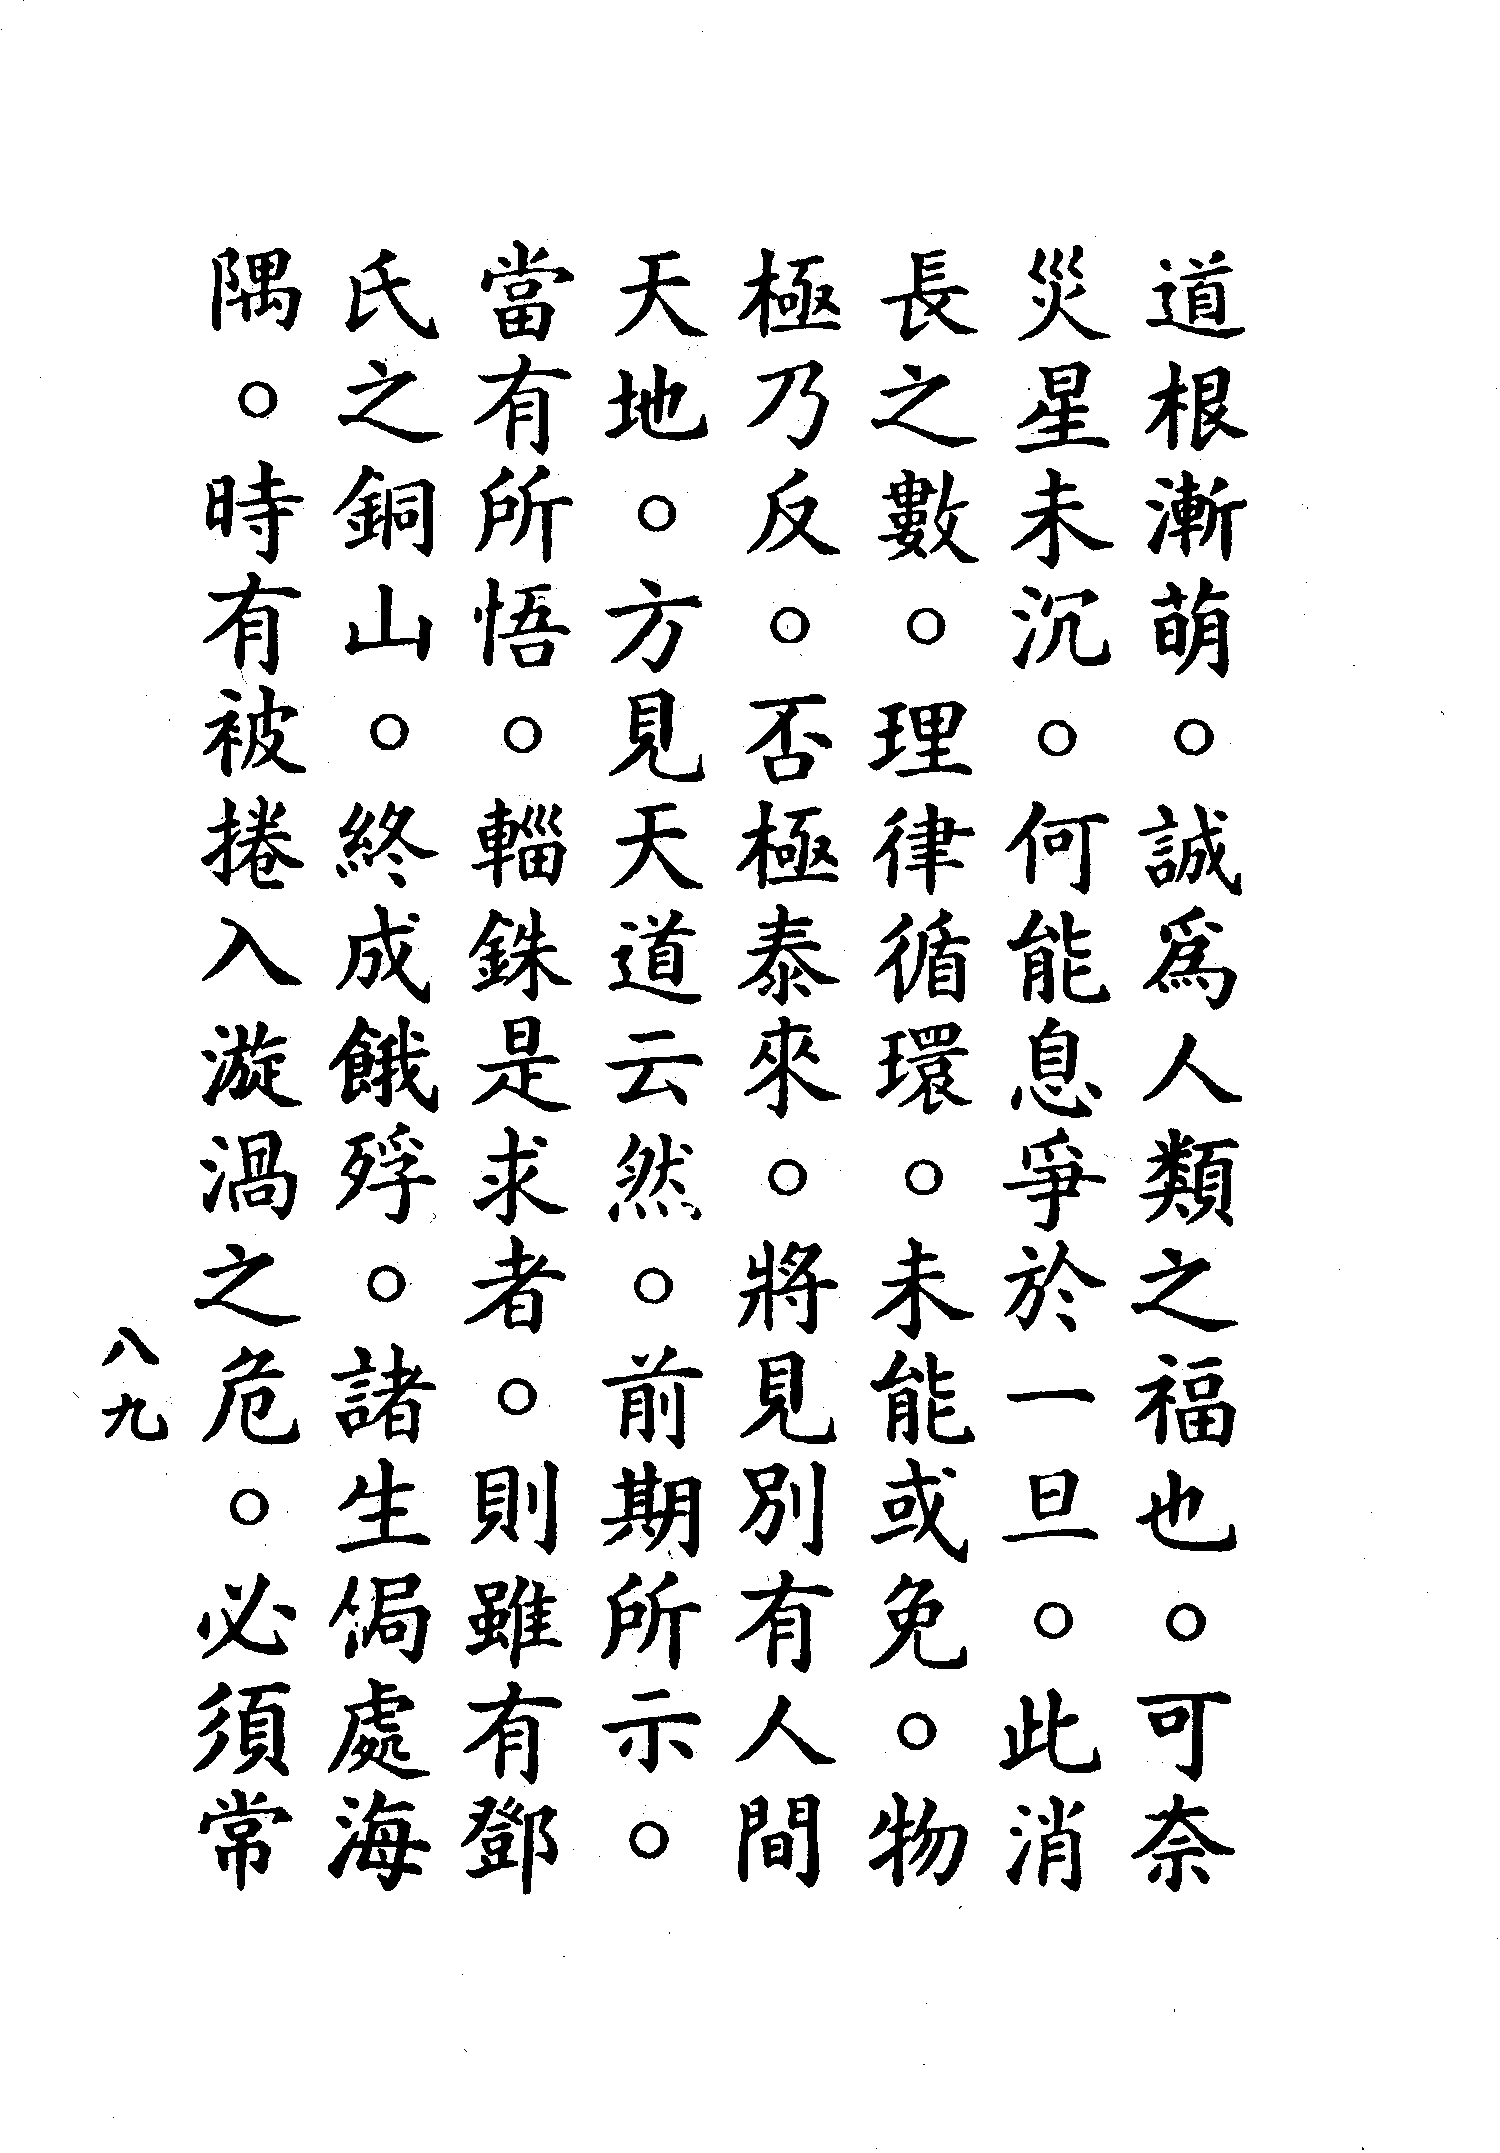 道根漸萌。誠爲人類之福也。可奈
災星未沉。何能息爭於一旦。此消
長之數。理律循環。未能或免。物
極乃反。否極泰來。將見別有人間
天地。方見天道云然。前期所示。
當有所悟。輜銖是求者。則雖有鄧
氏之銅山。終成餓殍。諸生侷處海
隅。時有被捲入漩渦之危。必須常
八九